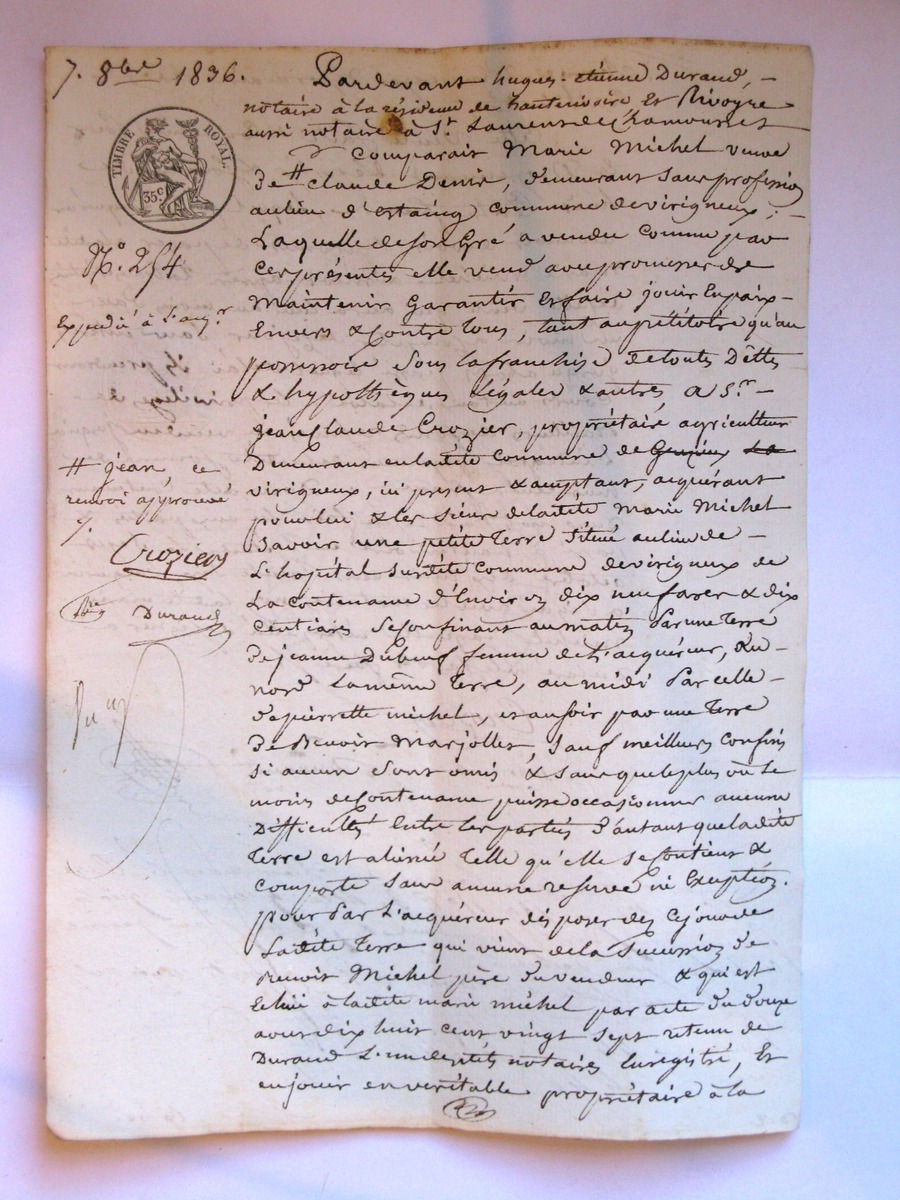 7. 8bre 1836.
TIMBRE ROYAL.
35c
No. 254
Expédié à l'aqr
# jean ce
renvoi approuvé
Crozier
Durand
Pardevant hugues-étienne Durand, -
notaire à la résidence de hauterivoire, Et Rivoyre
aussi notaire à St. Laurent de Chamousset
Comparait Marie Michel veuve
De # claude Denis, demeurant sans profession
au lieu d'Estaing commune de virigneux, -
Laquelle de son Gré a vendu comme par
Ces présentes elle vend avec promesse de
Maintenir Garantir et faire jouir En paix -
Envers & Contre tous, tant au pétitoire qu'au
possessoire sous la franchise de toutes Dettes
& hypothèques légales & autres, a Sr. -
jean Claude Crozier, propriétaire agriculteur
Demeurant en ladite Commune de
virigneux, ici présent & acceptant, acquérant
pour lui & les siens de ladite Marie Michel
Savoir une petite Terre Située au lieu de -
L'hopital Susdite Commune de virigneux de
La Contenance d'Environ dix neuf ares & dix
Centiares Se Confinant au matin Par une Terre
De jeanne Dubeuf femme de L'acquéreur, Du -
nord La même Terre, au midi Par celle -
De pierrette michel, et au soir par une Terre
De Benoit Marjollet, Sauf meilleurs Confins
Si aucun Sont omis & sans que le plus ou le
moins de Contenance puisse occasionner aucune
Difficulté Entre les parties D'autant que ladite
Terre est aliénée Telle qu'elle se Contient &
Comporte Sans aucune reserve ni Exception.
pour Par L'acquéreur disposer dès Ce jour de
Ladite Terre qui vient de la Succession de
Benoit Michel père du vendeur & qui est
Echue à ladite marie michel par acte du douze
aout dix huit cent vingt sept retenu de
Durand L'un desdits notaires Enregistré, Et
en jouir en véritable propriétaire à la